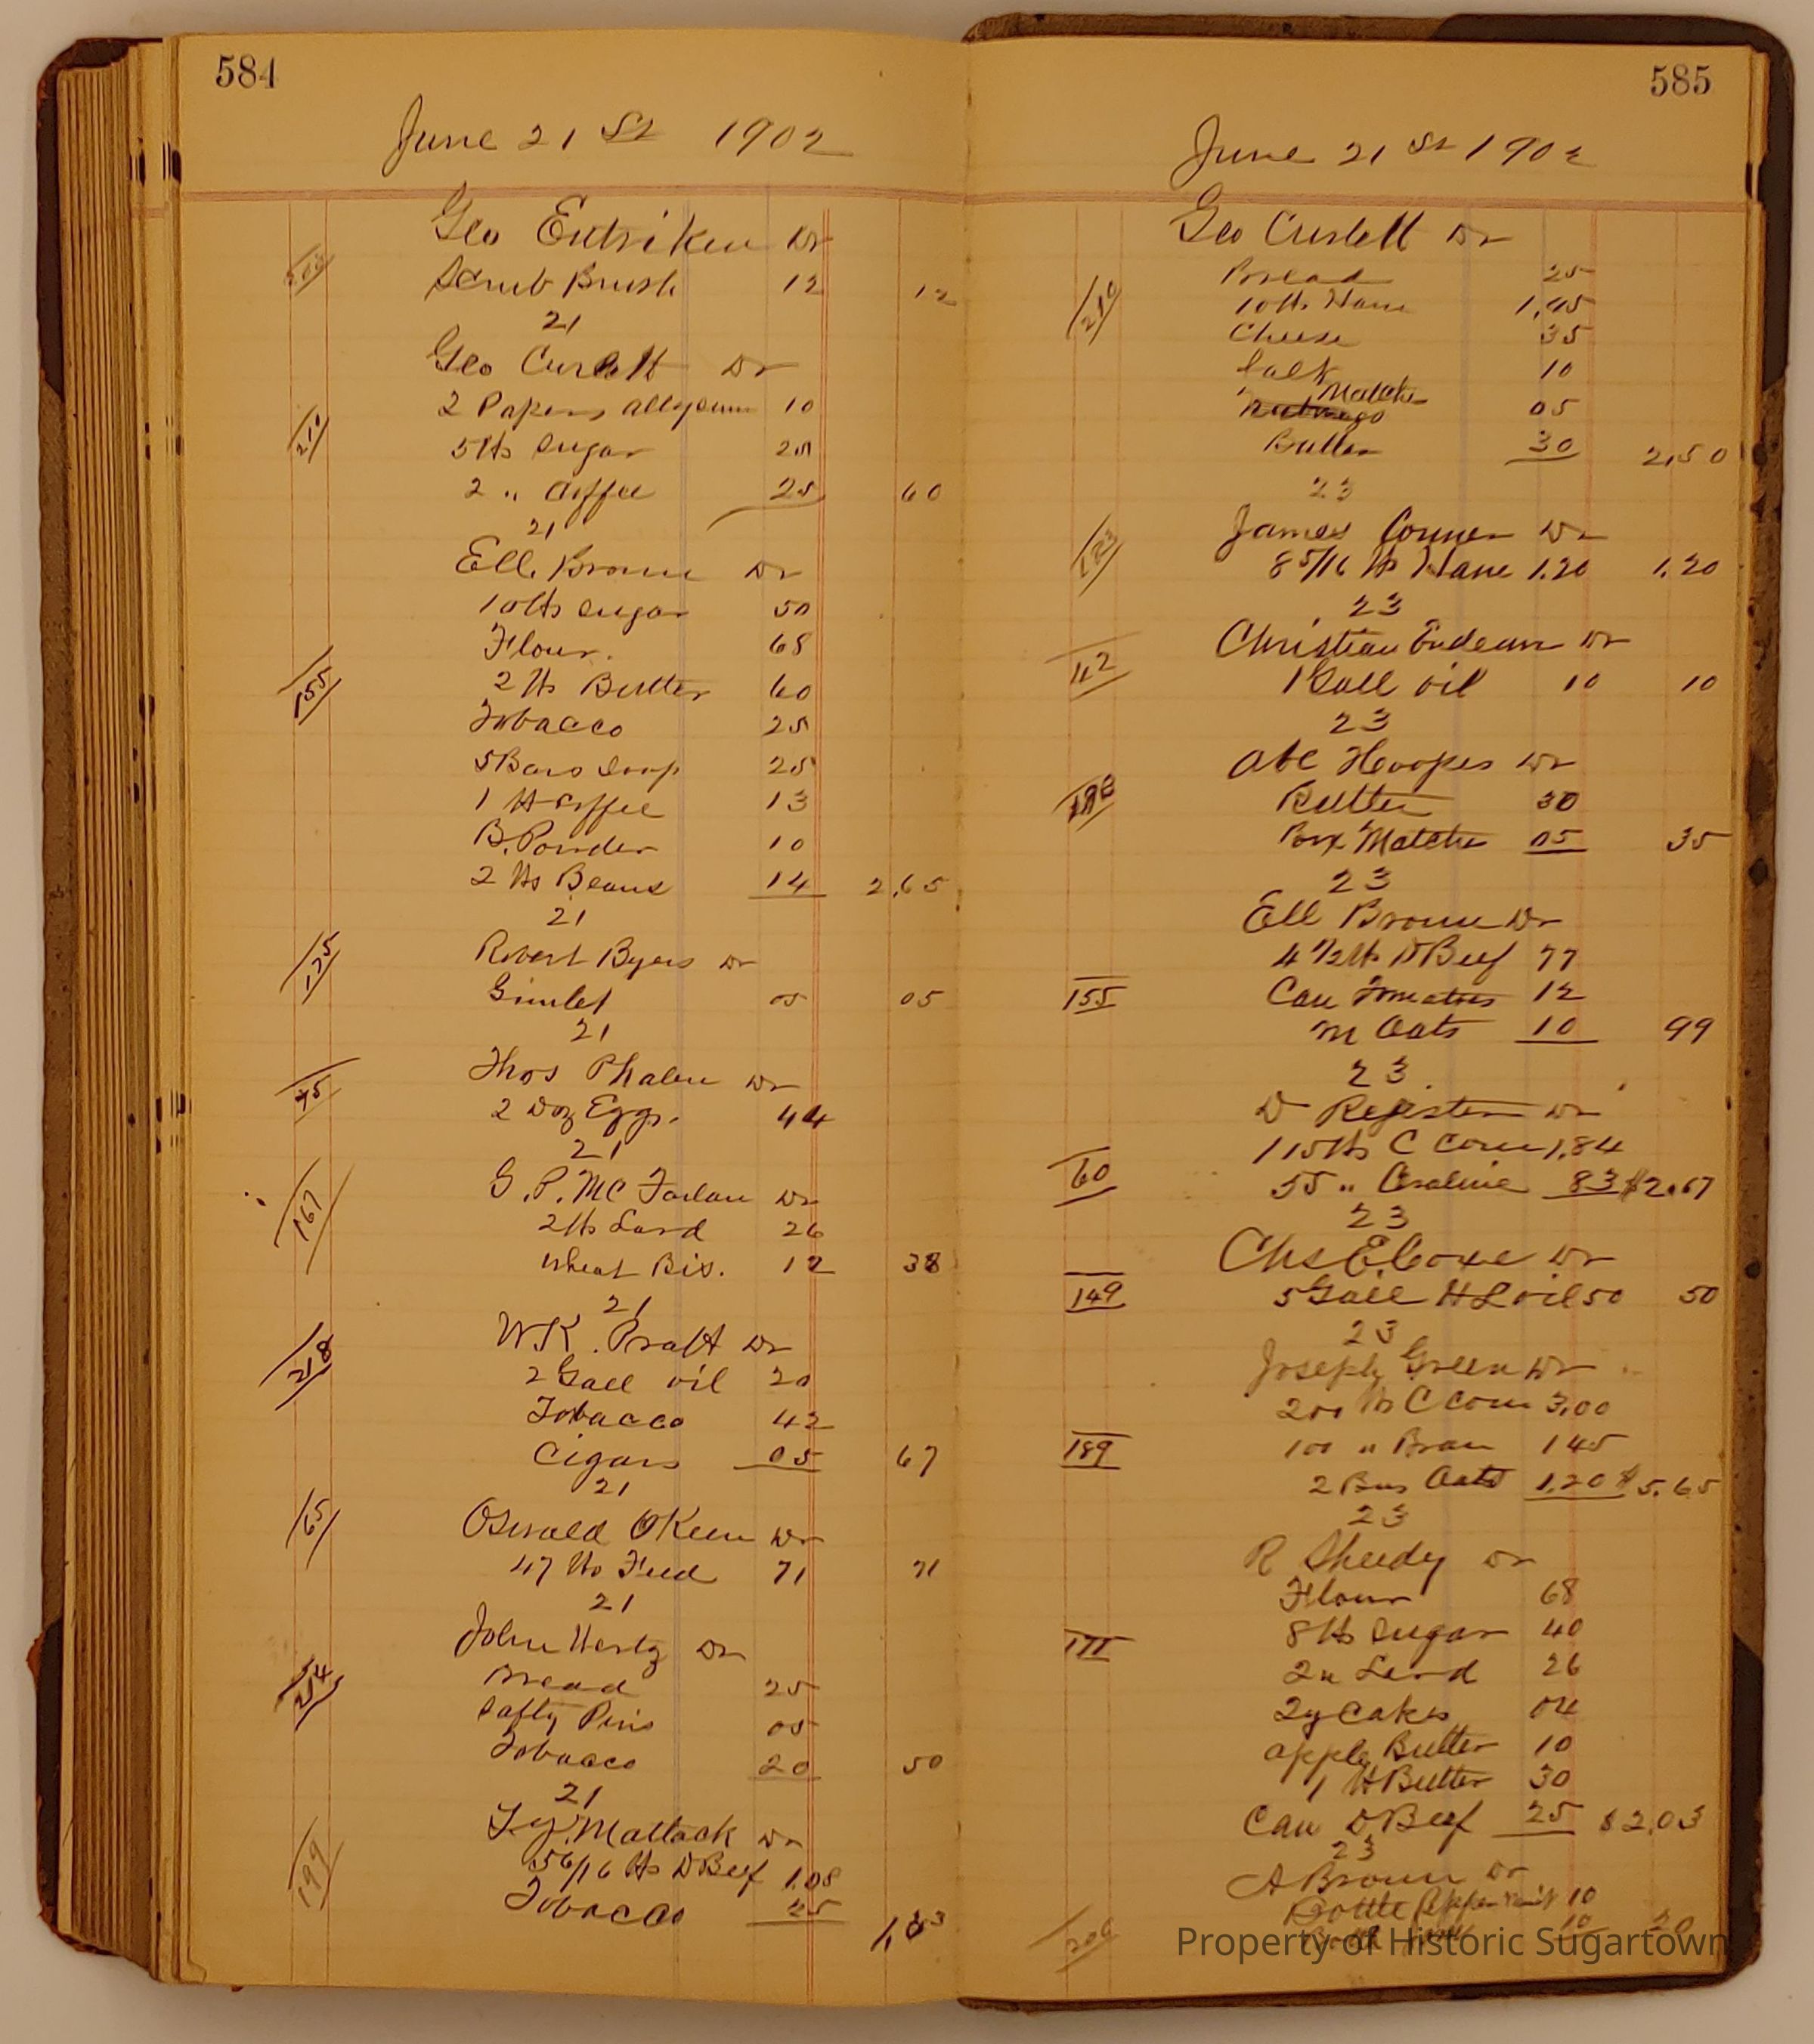 584
June 21 St 1902
Geo Entriken Dr
Scrub Brush 12 12
21
Geo Dr
2 Papers 10
210
5 lbs Sugar 25
2 " Coffee 25 60
21
Ell. Brown Dr
10 lbs Sugar 50
Flour. 68
155
2 lbs Butter 60
Tobacco 25
5 Bars Soap 25
1 lb Coffee 13
B. Powder 10
2 lbs Beans 14 2.65
21
175
Robert Byers Dr
Gimlet 05 05
21
Thos Phalen Dr
45
2 Doz Eggs. 44
21
167
G. P. Mc Farlan Dr
2 lbs Lard 26
Wheat Bis. 12 38
21
218
W K. Pratt Dr
2 Gall oil 20
Tobacco 42
Cigars 05 67
21
65
Oswald OKeen Dr
47 lbs Feed 71 71
21
John Wertz Dr
214
Bread 25
Safty Pins 05
Tobacco 20 50
21
199
Mattack Dr
5 6/16 lbs D Beef 1.08
Tobacco 25
585
June 21 St 1902
Geo Dr
Bread 25
210
10 lbs Ham 1,45
Cheese 35
Salt 10
Matches 05
Butter 30 2,50
23
James Conner Dr
123
8 5/16 lbs Ham 1.20 1.20
23
Christian Endeavor Dr
42
1 Gall oil 10 10
23
Abe Hoopes Dr
Butter 30
Box Matches 05 35
23
Ell Brown Dr
4 1/2 lbs D Beef 77
155
Can Tomatoes 12
M Oats 10 99
23.
D Register Dr
115 lbs C Corn 1.84
60
55 " Ceraline 83 $2.67
23
Chs E. Coxe Dr
149
5 Gall H L oil 50 50
23
Joseph Green Dr
200 lbs C Corn 3.00
189
100 " Bran 1 45
2 Bus Oats 1.20 $5.65
23
R Sheedy Dr
Flour 68
171
8 lbs Sugar 40
2 " Lard 26
2 y Cakes 04
Apple Butter 10
1 lb Butter 30
Can D Beef 25 $2.03
23
A Brown Dr
Bottle Peppermint 10
206
10 20
Property of Historic Sugartown